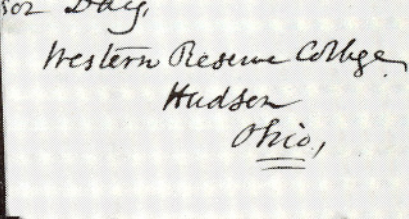 sor Day,
Western Reserve College,
Hudson
Ohio,